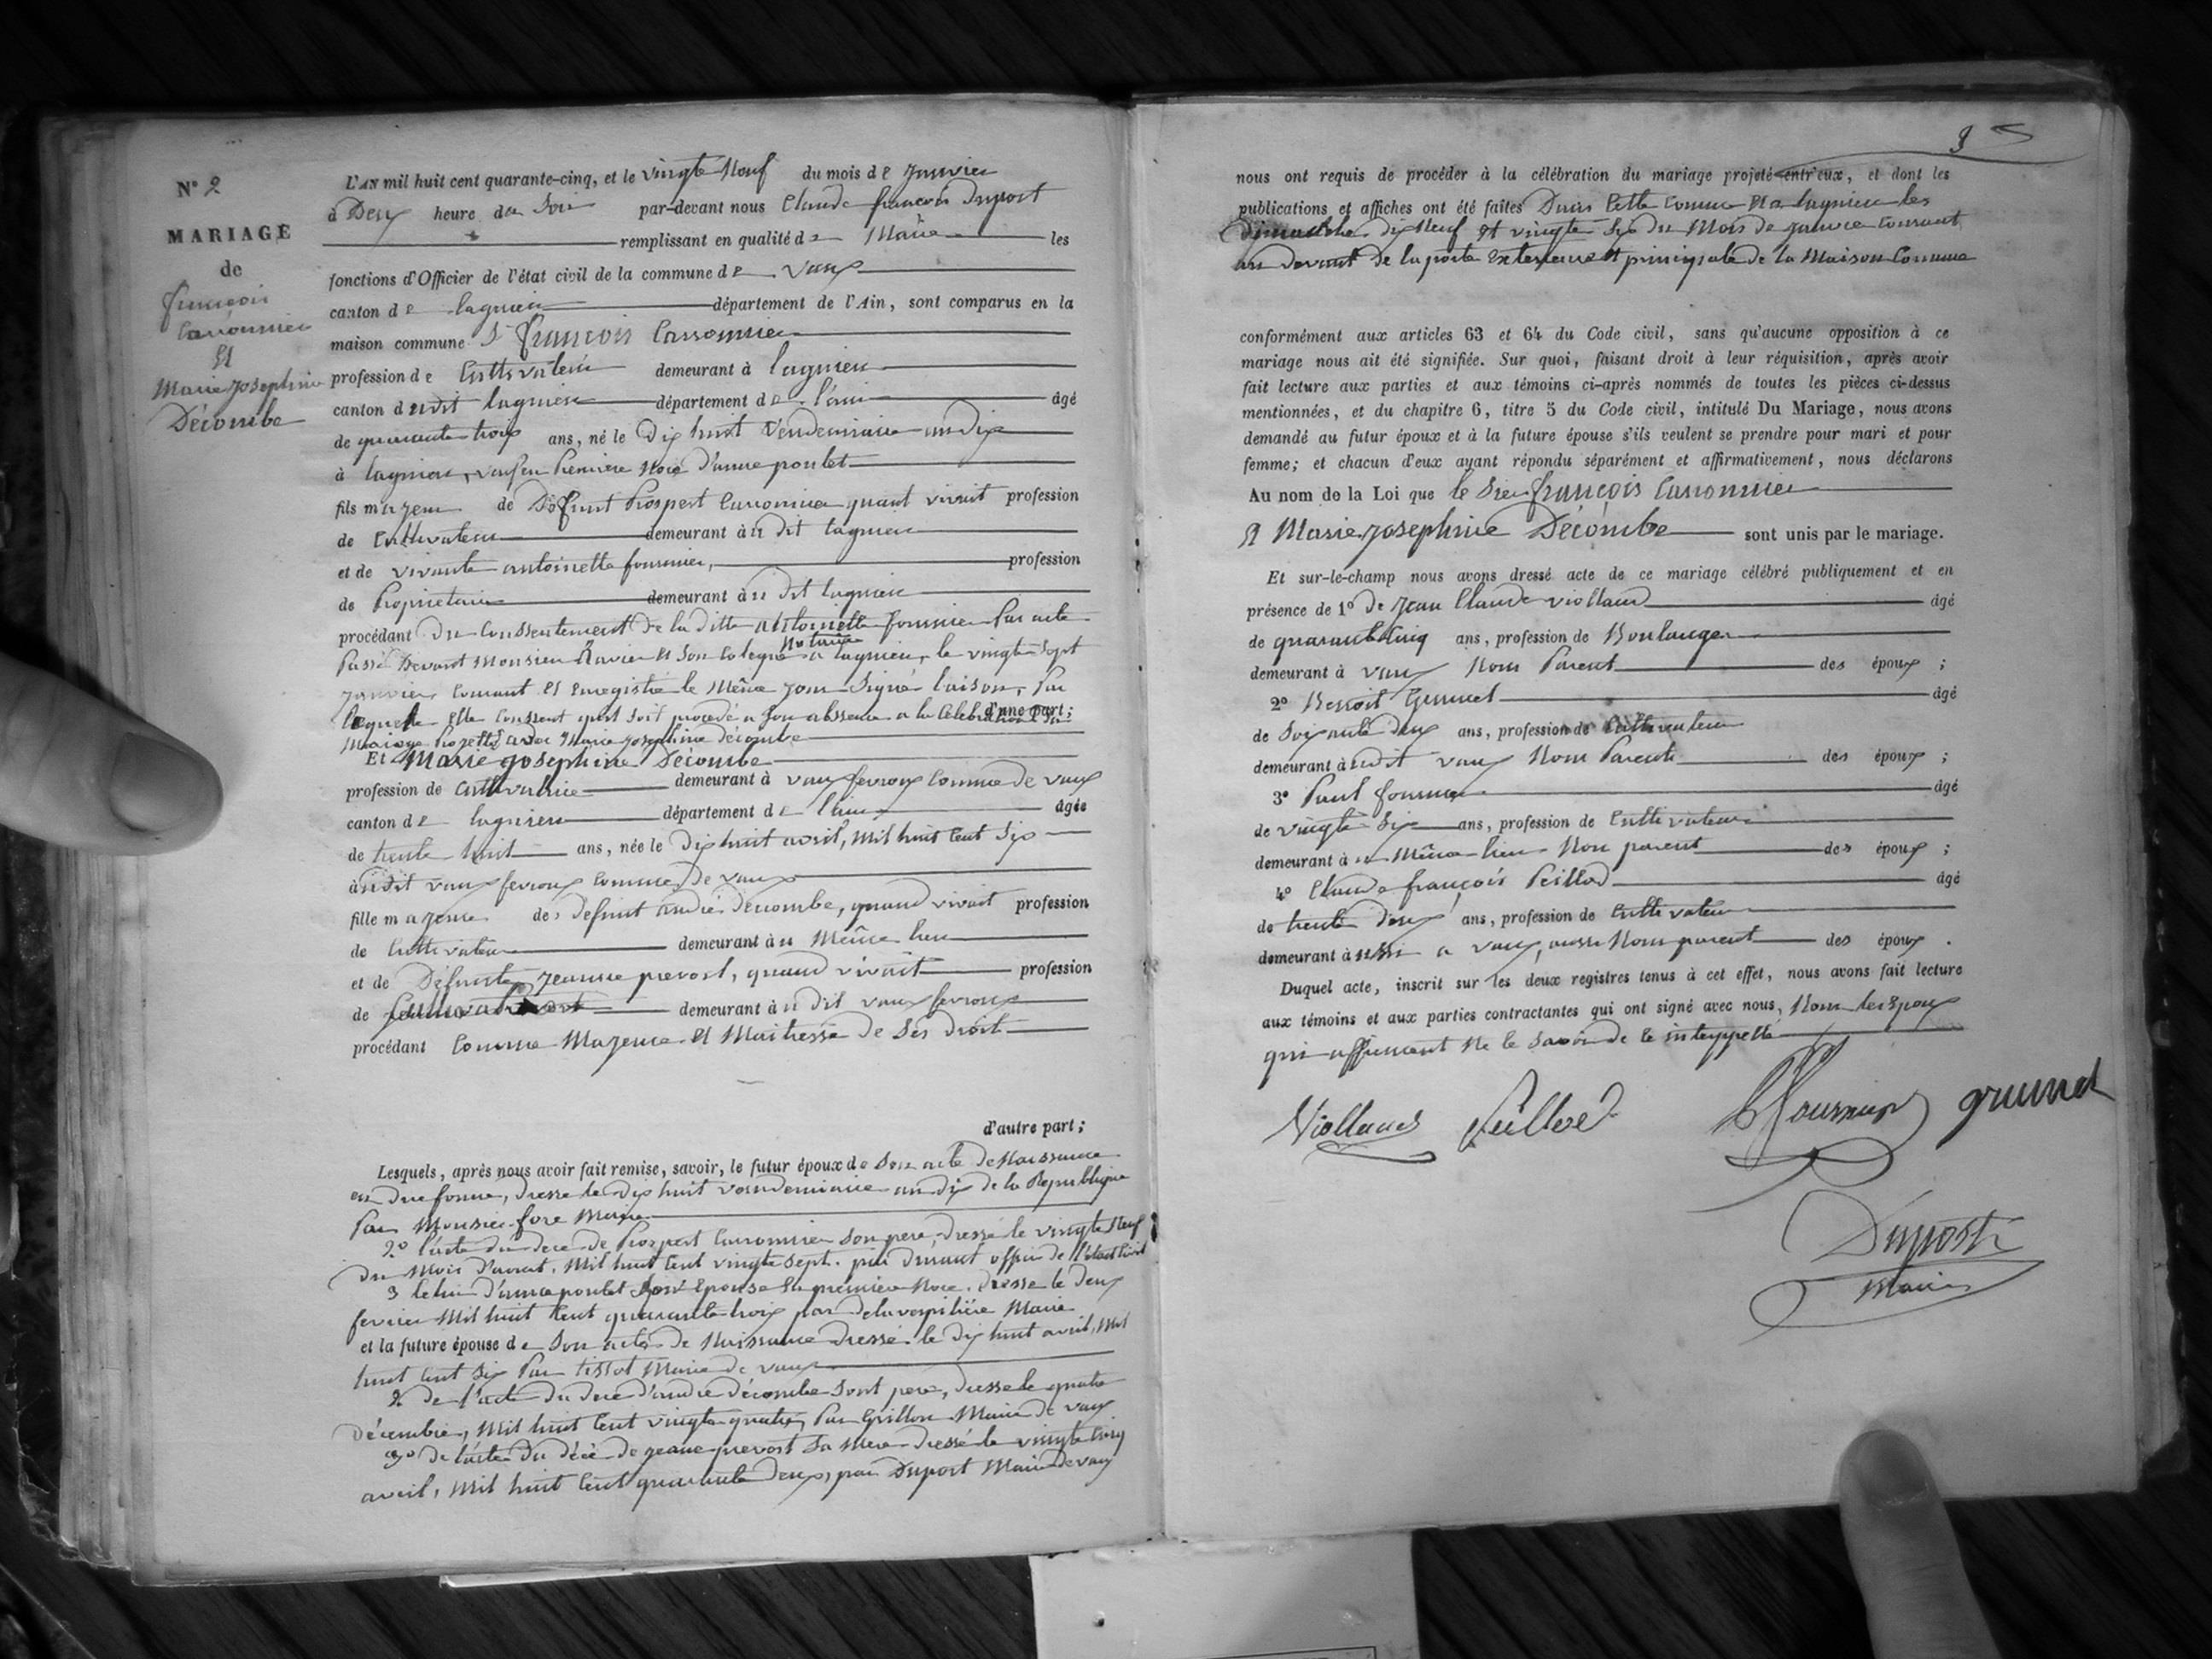 N° 2
MARIAGE
de
françois
Carronnier
Et
Marie Josephine
Décombe
L'AN mil huit cent quarante-cinq, et le vingte Neuf du mois de Janvier
à Deux heure du Soir par-devant nous Claude françois Duport
remplissant en qualité de Maire les
fonctions d'Officier de l'état civil de la commune de Vaux
canton de lagnieu département de l'Ain, sont comparus en la
maison commune Sr françois Carronnier
profession de Cultivateur demeurant à lagnieu
canton dudit lagnieu département de l'ain âgé
de quarante trois ans, né le Dix huit Vendemiaire an dix
à lagnieu, veuf en Première Noce d'anne poulet
fils majeur de Défunt Prospert Carronnier quant vivait profession
de Cultivateur demeurant au dit lagnieu
et de vivante antoinette fournier, profession
de Proprietaire demeurant au dit lagnieu
procédant Du Conssentement de la ditte antoinette fournier Par acte
Passé Devant Monsieur Ravier et Son Colegue Notaire a lagnieu, le vingte Sept
Janvier Courant et Enregistré le Même Jour Signé loison, Par
lequel Elle Conssent quil Soit procedé a Son abssence a la Celebration Du d'une part;
Mariage Projetté avec Marie Josephine décombe
Et Marie Josephine Décombe
profession de Cultivatrice demeurant à vaux fevroux Commune de vaux
canton de lagnieu département de l'ain âgée
de trente huit ans, née le Dix huit avril, Mil huit Cent Six
audit vaux fevroux Commune de vaux
fille majeure de Défunt André décombe, quand vivait profession
de Cultivateur demeurant au Même lieu
et de Défunte Jeanne prevost, quand vivait profession
de demeurant au dit vaux fevroux
procédant Comme Majeure et Maitresse de Ses Droit
d'autre part;
Lesquels, après nous avoir fait remise, savoir, le futur époux de Son acte de Naissance
en due forme, dressé le dix huit vendemiaire an dix de la Republique
Par Monsieur fore Maire
2° l'acte du dece de Prospert Carronnier Son pere, dressé le vingte Neuf
du Mois d'avout, Mil huit Cent vingte Sept. par durant officier de l'état Civil
3 Celui d'anne poulet Son Epouse En première Noce, dressé le Deux
fevrier Mil huit Cent quarante trois par delavespilière Maire
et la future épouse de Son acte de Naissance dressé le dix huit avril, Mil
huit Cent Six Par tissot Maire de vaux
2 de l'acte du dece d'andre décombe Sont pere, dressé le quatre
décembre, Mil huit Cent vingte quatre, Par Grillon Maire de vaux
3° de l'acte du décè de Jeane prevost Sa Mere dressé le vingte Cinq
avril, Mil huit Cent quarante Deux, par Duport Maire de vaux
3
nous ont requis de procéder à la célébration du mariage projeté entr'eux, et dont les
publications et affiches ont été faites Dans Cette Commune Et a lagnieu les
dimanches dix Neuf et vingte Six du Mois de Janvier Courant
au devant de la porte Exterieure et principale de la Maison Commune
conformément aux articles 63 et 64 du Code civil, sans qu'aucune opposition à ce
mariage nous ait été signifiée. Sur quoi, faisant droit à leur réquisition, après avoir
fait lecture aux parties et aux témoins ci-après nommés de toutes les pièces ci-dessus
mentionnées, et du chapitre 6, titre 5 du Code civil, intitulé Du Mariage, nous avons
demandé au futur époux et à la future épouse s'ils veulent se prendre pour mari et pour
femme; et chacun d'eux ayant répondu séparément et affirmativement, nous déclarons
Au nom de la Loi que le Sieur françois Carronnier
Et Marie Josephine Décombe sont unis par le mariage.
Et sur-le-champ nous avons dressé acte de ce mariage célébré publiquement et en
présence de 1° de Jean Claude viollaud âgé
de quarante Cinq ans, profession de Boulanger
demeurant à vaux Nom Parent des époux;
2° Benoit Grumet âgé
de Soixante deux ans, profession de Cultivateur
demeurant audit vaux Nom Parent des époux;
3° Paul fournier âgé
de vingte Six ans, profession de Cultivateur
demeurant au Même lieu Non parent des époux;
4° Claude françois Peillod âgé
de trente deux ans, profession de Cultivateur
demeurant aussi a vaux, aussi Nom parent des époux.
Duquel acte, inscrit sur les deux registres tenus à cet effet, nous avons fait lecture
aux témoins et aux parties contractantes qui ont signé avec nous, Nom les Epoux
qui affirment Ne le Savoir de ce interppellé
Viollaud Peillod P Fournier grumet
Duport
Maire